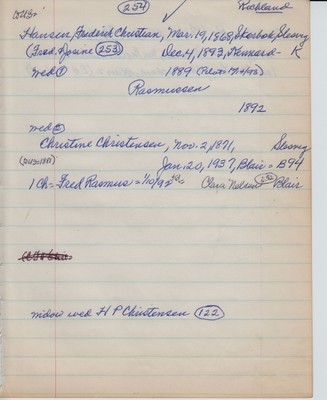 254 Richland
Hansen, Fredrick Christian, Mar. 19, 1868, Skerbek, Slesvig
(Fred, Janine 253) Dec. 4, 1893, Kennard - K
wed ① 1889
Rasmussen
1892
wed ②
Christine Christensen, Nov. 2, 1871, Slesvig
Jan. 20, 1937, Blair = B94
1 Ch = Fred Rasmus = 1/10/92 Clara Nielsen Blair
widow wed H P Christensen 122